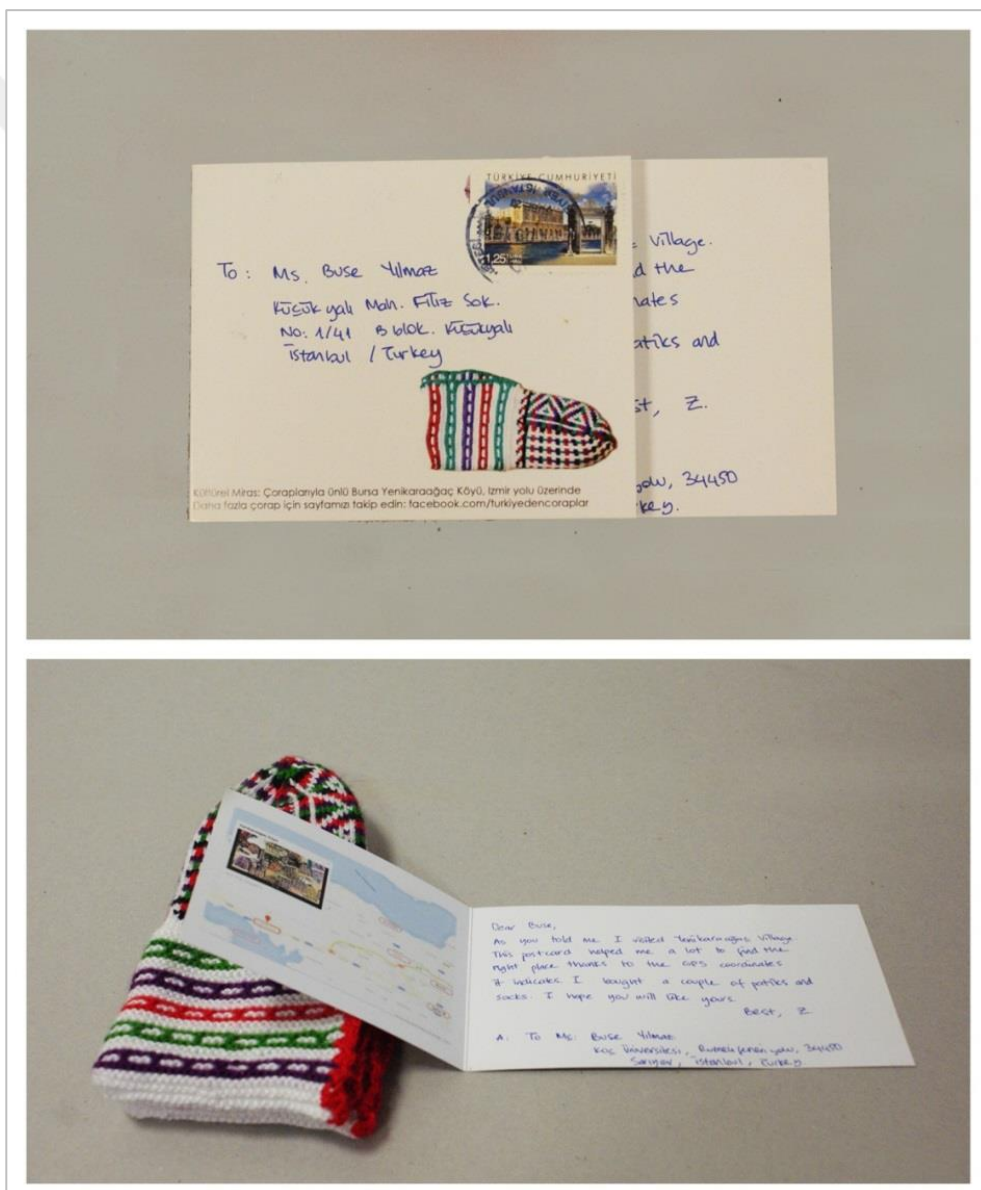 TÜRKİYE CUMHURİYETİ
1,25
To: Ms. Buse Yılmaz
Küçükyalı Mah. Filiz Sok.
No: 1/41 B blok. Küçükyalı
İstanbul / Turkey
Kültürel Miras: Çoraplarıyla ünlü Bursa Yenikaraağaç Köyü, Izmir yolu üzerinde
Daha fazla çorap için sayfamızı takip edin: facebook.com/turkiyedencoraplar
Village.
d the
nates
atiks and
st, Z.
yolu, 34450
key.
Dear Buse,
As you told me I visited Yenikaraağaç Village.
This postcard helped me a lot to find the
right place thanks to the GPS coordinates
it indicates. I bought a couple of patiks and
socks. I hope you will like yours.
Best, Z.
A: To Ms. Buse Yılmaz
Koç Üniversitesi, Rumelifeneri yolu, 34450
Sarıyer, İstanbul, Turkey.